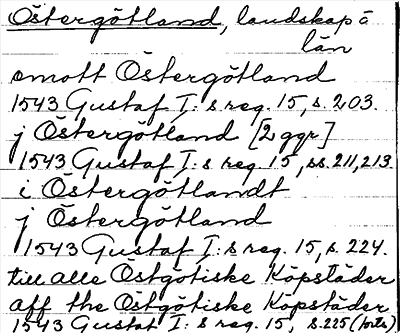 Östergötland, landskap å
län
emott Östergötland
1543 Gustaf I:s reg. 15, s. 203.
j Östergötland [2 ggr]
1543 Gustaf I:s reg. 15, ss. 211, 213.
i Östergötlandt
j Östergötland
1543 Gustaf I:s reg. 15, s. 224.
till alle Östgötiske Köpstäder
aff the Östgötiske Köpstäder
1543 Gustaf I:s reg. 15, s. 225 (forts)